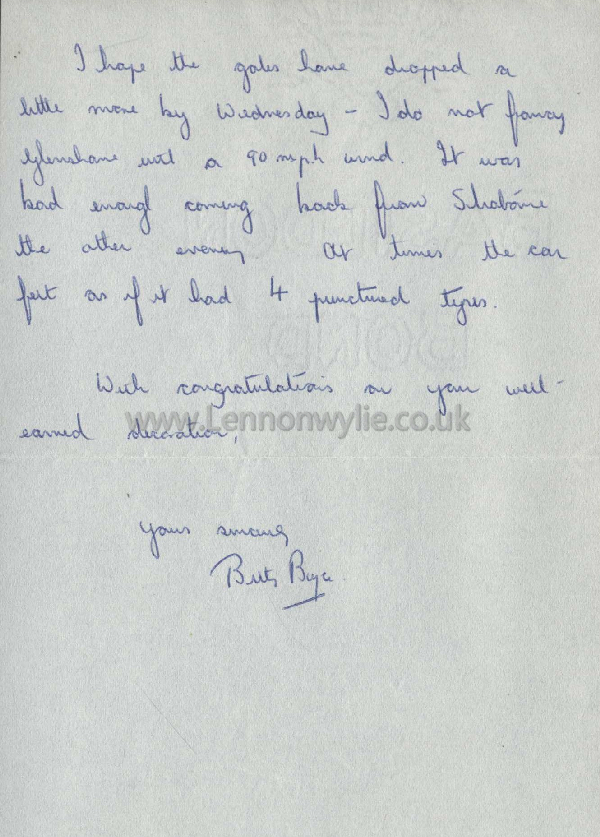 I hope the gales have dropped a
little more by Wednesday - I do not fancy
Glenshane with a 90 mph wind. It was
bad enough coming back from Strabane
the other evening At times the car
felt as if it had 4 punctured tyres.
With congratulations on your well-
earned decoration,
www.Lennonwylie.co.uk
Yours sincerely